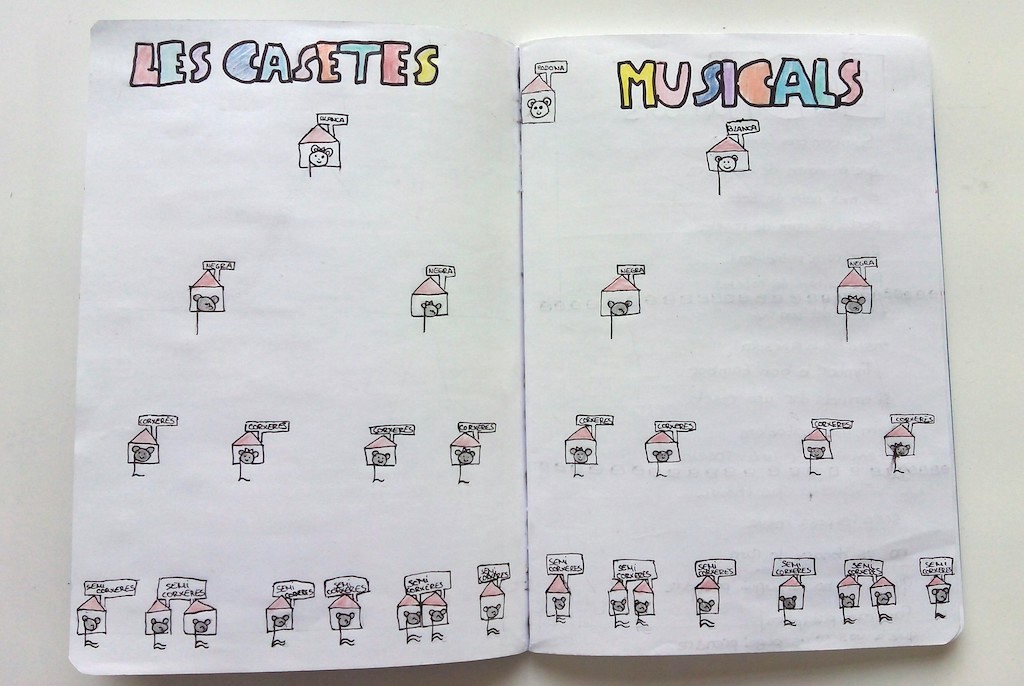 LES CASETES
MUSICALS
RODONA
BLANCA
BLANCA
NEGRA
NEGRA
NEGRA
NEGRA
CORXERES
CORXERES
CORXERES
CORXERES
CORXERES
CORXERES
CORXERES
CORXERES
SEMI
CORXERES
SEMI
CORXERES
SEMI
CORXERES
SEMI
CORXERES
SEMI
CORXERES
SEMI
CORXERES
SEMI
CORXERES
SEMI
CORXERES
SEMI
CORXERES
SEMI
CORXERES
SEMI
CORXERES
SEMI
CORXERES